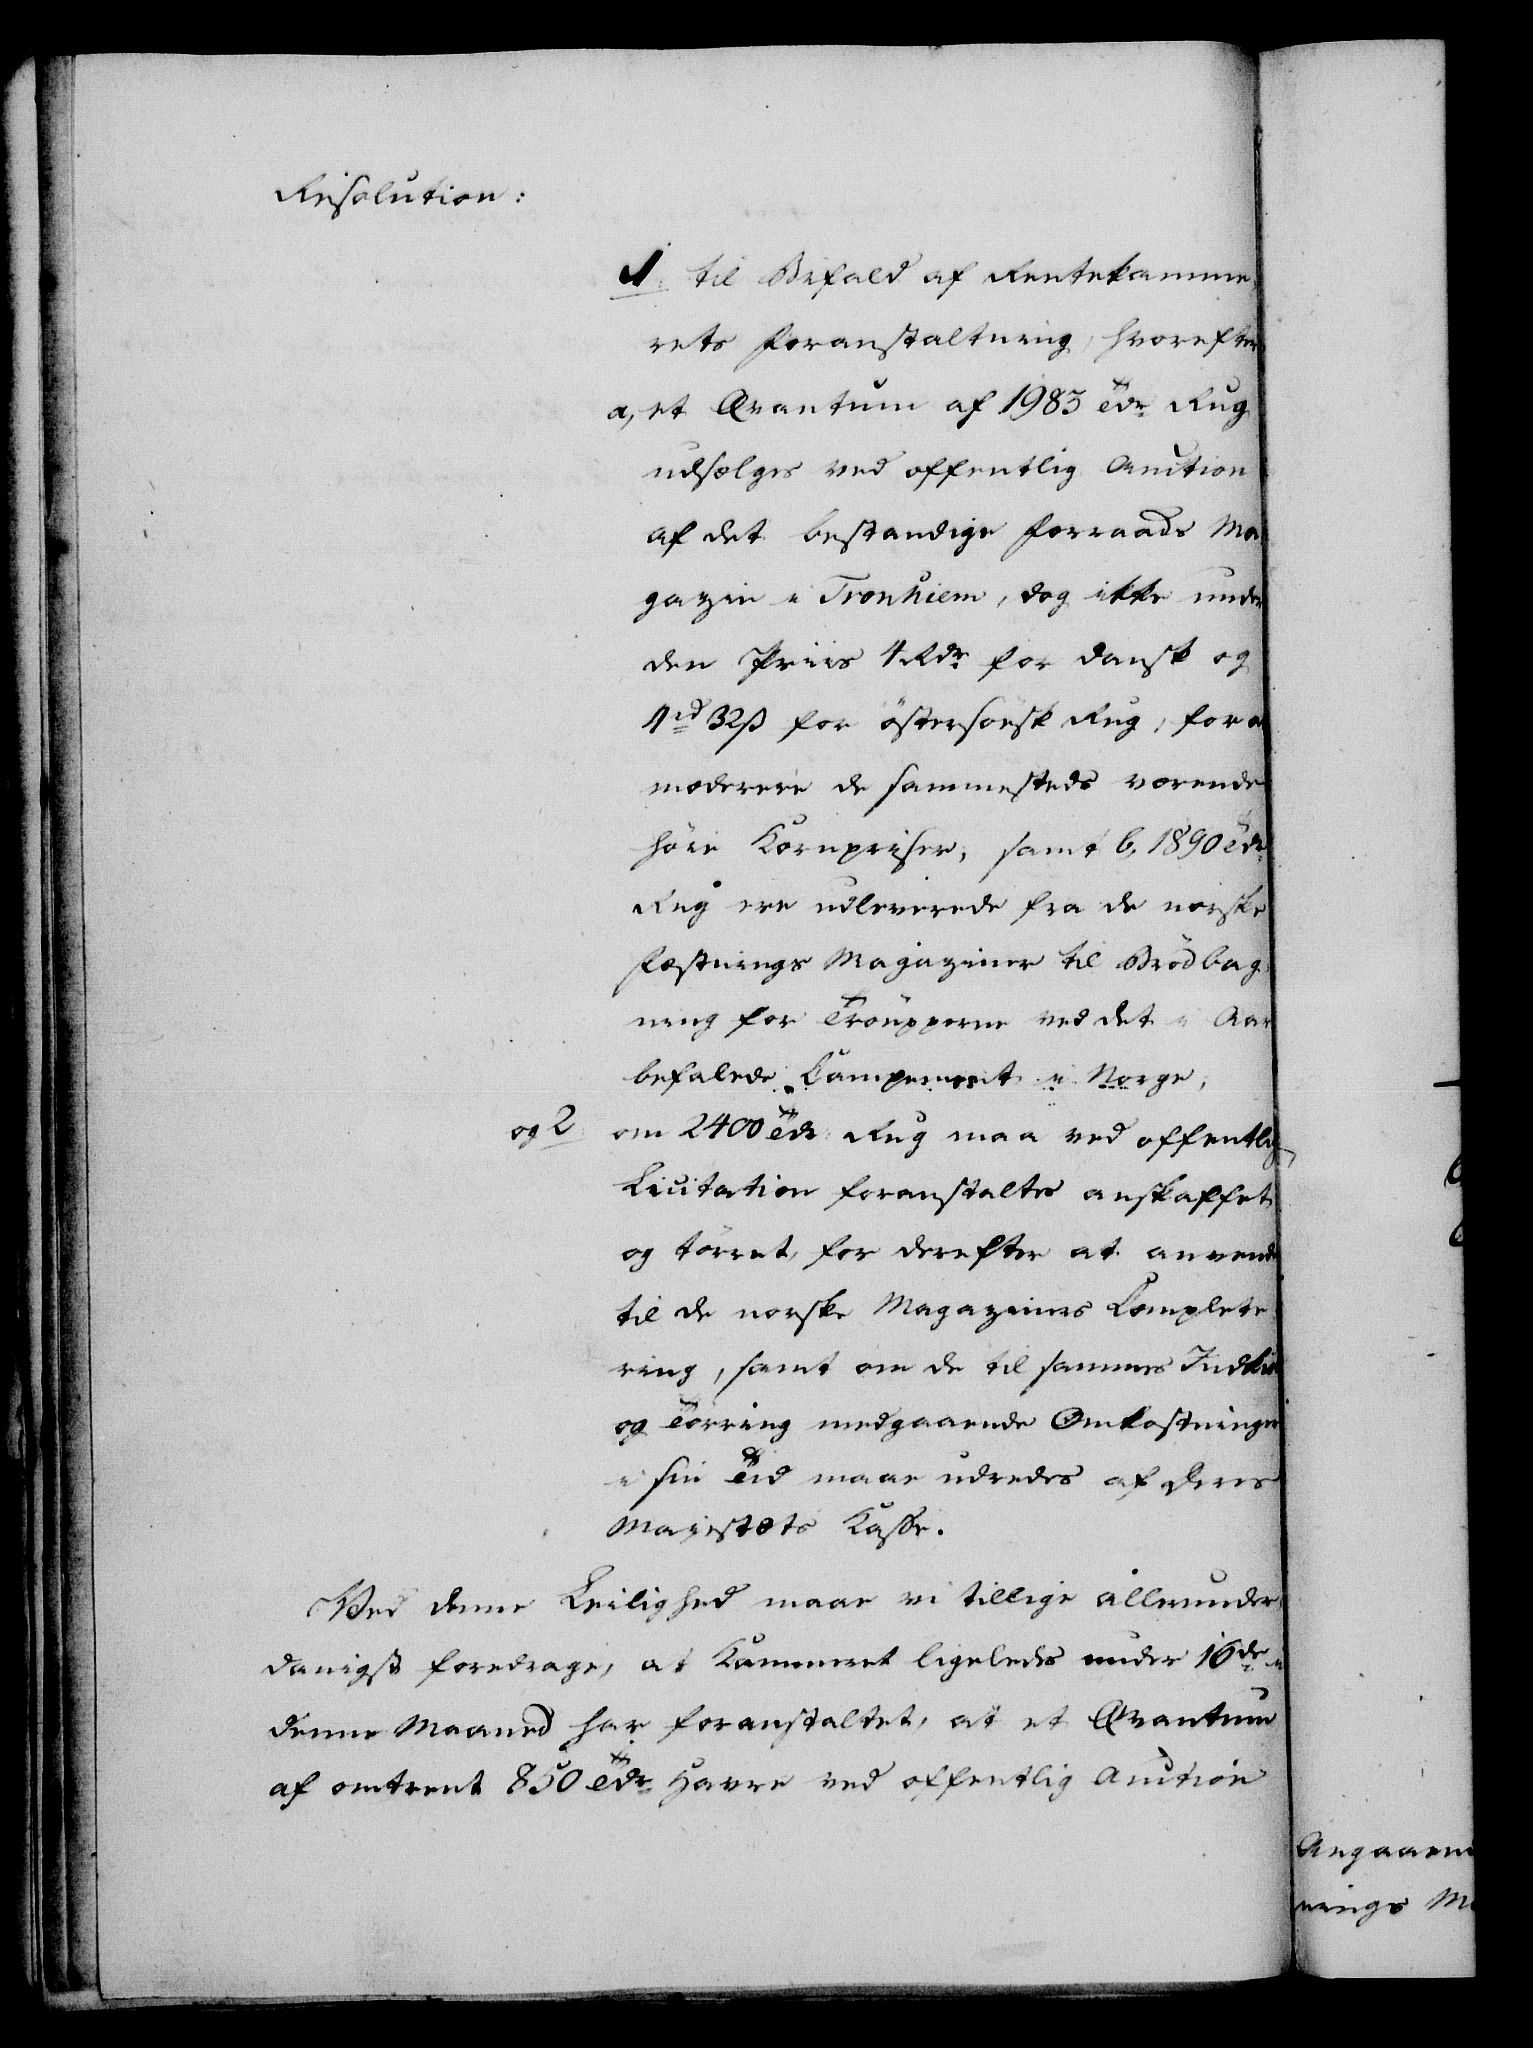 Resolution:
1. til Bifald af Rentekamme-
rets Foranstaltning, hvorefter
a, et Qvantum af 1983 Tdr Rug
udsælges ved offentlig Auction
af det bestandige Forraads Ma-
gazin i Tronhiem, dog ikke under
den Priis 4 Rdr for dansk og
4 rd 32 ß for östersöisk Rug, for at
moderere de sammesteds værende
höie Kornpriser, samt b, 1890 Tdr
Rug ere udleverede fra de norske
Fæstnings Magaziner til Brödbag-
ning for Troupperne ved det i Aar
befalede Campement i Norge,
og 2 om 2400 Tdr Rug maa ved offentlig
Licitation foranstaltes anskaffet
og törret, for derefter at anvendes
til de norske Magaziners Complete-
ring, samt om de til sammes Indkiöb
og Törring medgaaende Omkostninger
i sin Tid maae udredes af Deres
Majestæts Kasse.
Ved denne Leilighed maae vi tillige allerunder-
danigst foredrage, at Kammeret ligeledes under 16de i
denne Maaned har foranstaltet, at et Qvantum
af omtrent 850 Tdr Havre ved offentlig Auction
Angaaen
nings Ma